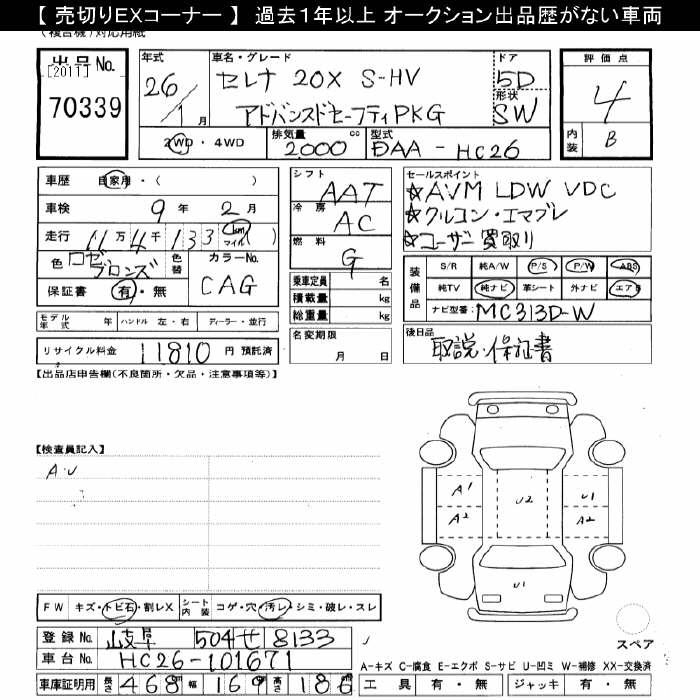 【 売切りEXコーナー 】 過去1年以上 オークション出品歴がない車両
(複合機)対応用紙
出品No.
[2011]
70339
年式
26/1月
車名・グレード
セレナ 20X S-HV
アドバンスドセーフティPKG
ドア
5D
形状
SW
評価点
4
内装
B
2WD・4WD
排気量
2000
cc
型式
DAA-HC26
車歴
自家用・( )
車検
9年2月
走行
11万4千133
km
マイル
( )
色
ロゼブロンズ
色替
カラーNo.
CAG
保証書
有・無
シフト
AAT
冷房
AC
燃料
G
乗車定員
名
積載量
kg
総重量
kg
名変期限
月 日
セールスポイント
☆AVM LDW VDC
☆クルコン・エマブレ
☆ユーザー買取り
装備品
S/R
純A/W
P/S
P/W
ABS
純TV
純ナビ
革シート
外ナビ
エアB
ナビ型番
MC313D-W
モデル年式
年
ハンドル
左・右
ディーラー・並行
リサイクル料金
11810
円 預託済
後日品
取説・保証書
【出品店申告欄(不良箇所・欠品・注意事項等)】
【検査員記入】
A・U
A1
A2
U2
U1
A2
U1
FW
キズ・トビ石・割レX
シート内装
コゲ・穴・汚レ・シミ・破レ・スレ
登録No.
岐阜 504せ8133
車台No.
HC26-101671
車庫証明用
長さ
468
幅
169
高さ
186
スペア
A-キズ C-腐食 E-エクボ S-サビ U-凹ミ W-補修 XX-交換済
工具
有・無
ジャッキ
有・無